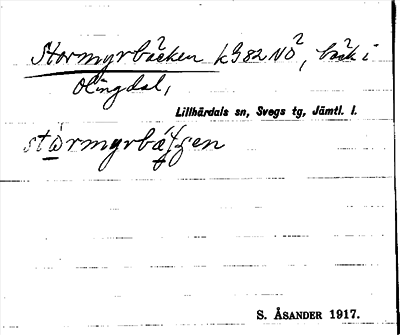 Stormyrbäcken k982NO², bäck i
Olingdal,
Lillhärdals sn, Svegs tg, Jämtl. l.
S. ÅSANDER 1917.